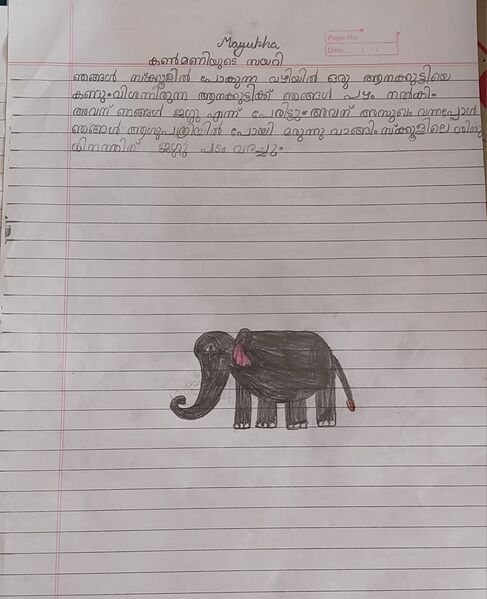 Mayukha
Page No.
Date
കൺമണിയുടെ ഡയറി
ഞങ്ങൾ സ്ക്കൂളിൽ പോകുന്ന വഴിയിൽ ഒരു ആനക്കുട്ടിയെ
കണ്ടു. വിശന്നിരുന്ന ആനകുട്ടിക്ക് ഞങ്ങൾ പഴം നൽകി.
അവന് ഞങ്ങൾ ജഗ്ഗു എന്ന് പേരിട്ടു. അവന് അസുഖം വന്നപ്പോൾ
ഞങ്ങൾ ആശുപത്രിയിൽ പോയി മരുന്നു വാങ്ങി. സ്ക്കൂളിലെ ശിശു
ദിനത്തിന് ജഗ്ഗു പടം വരച്ചു.